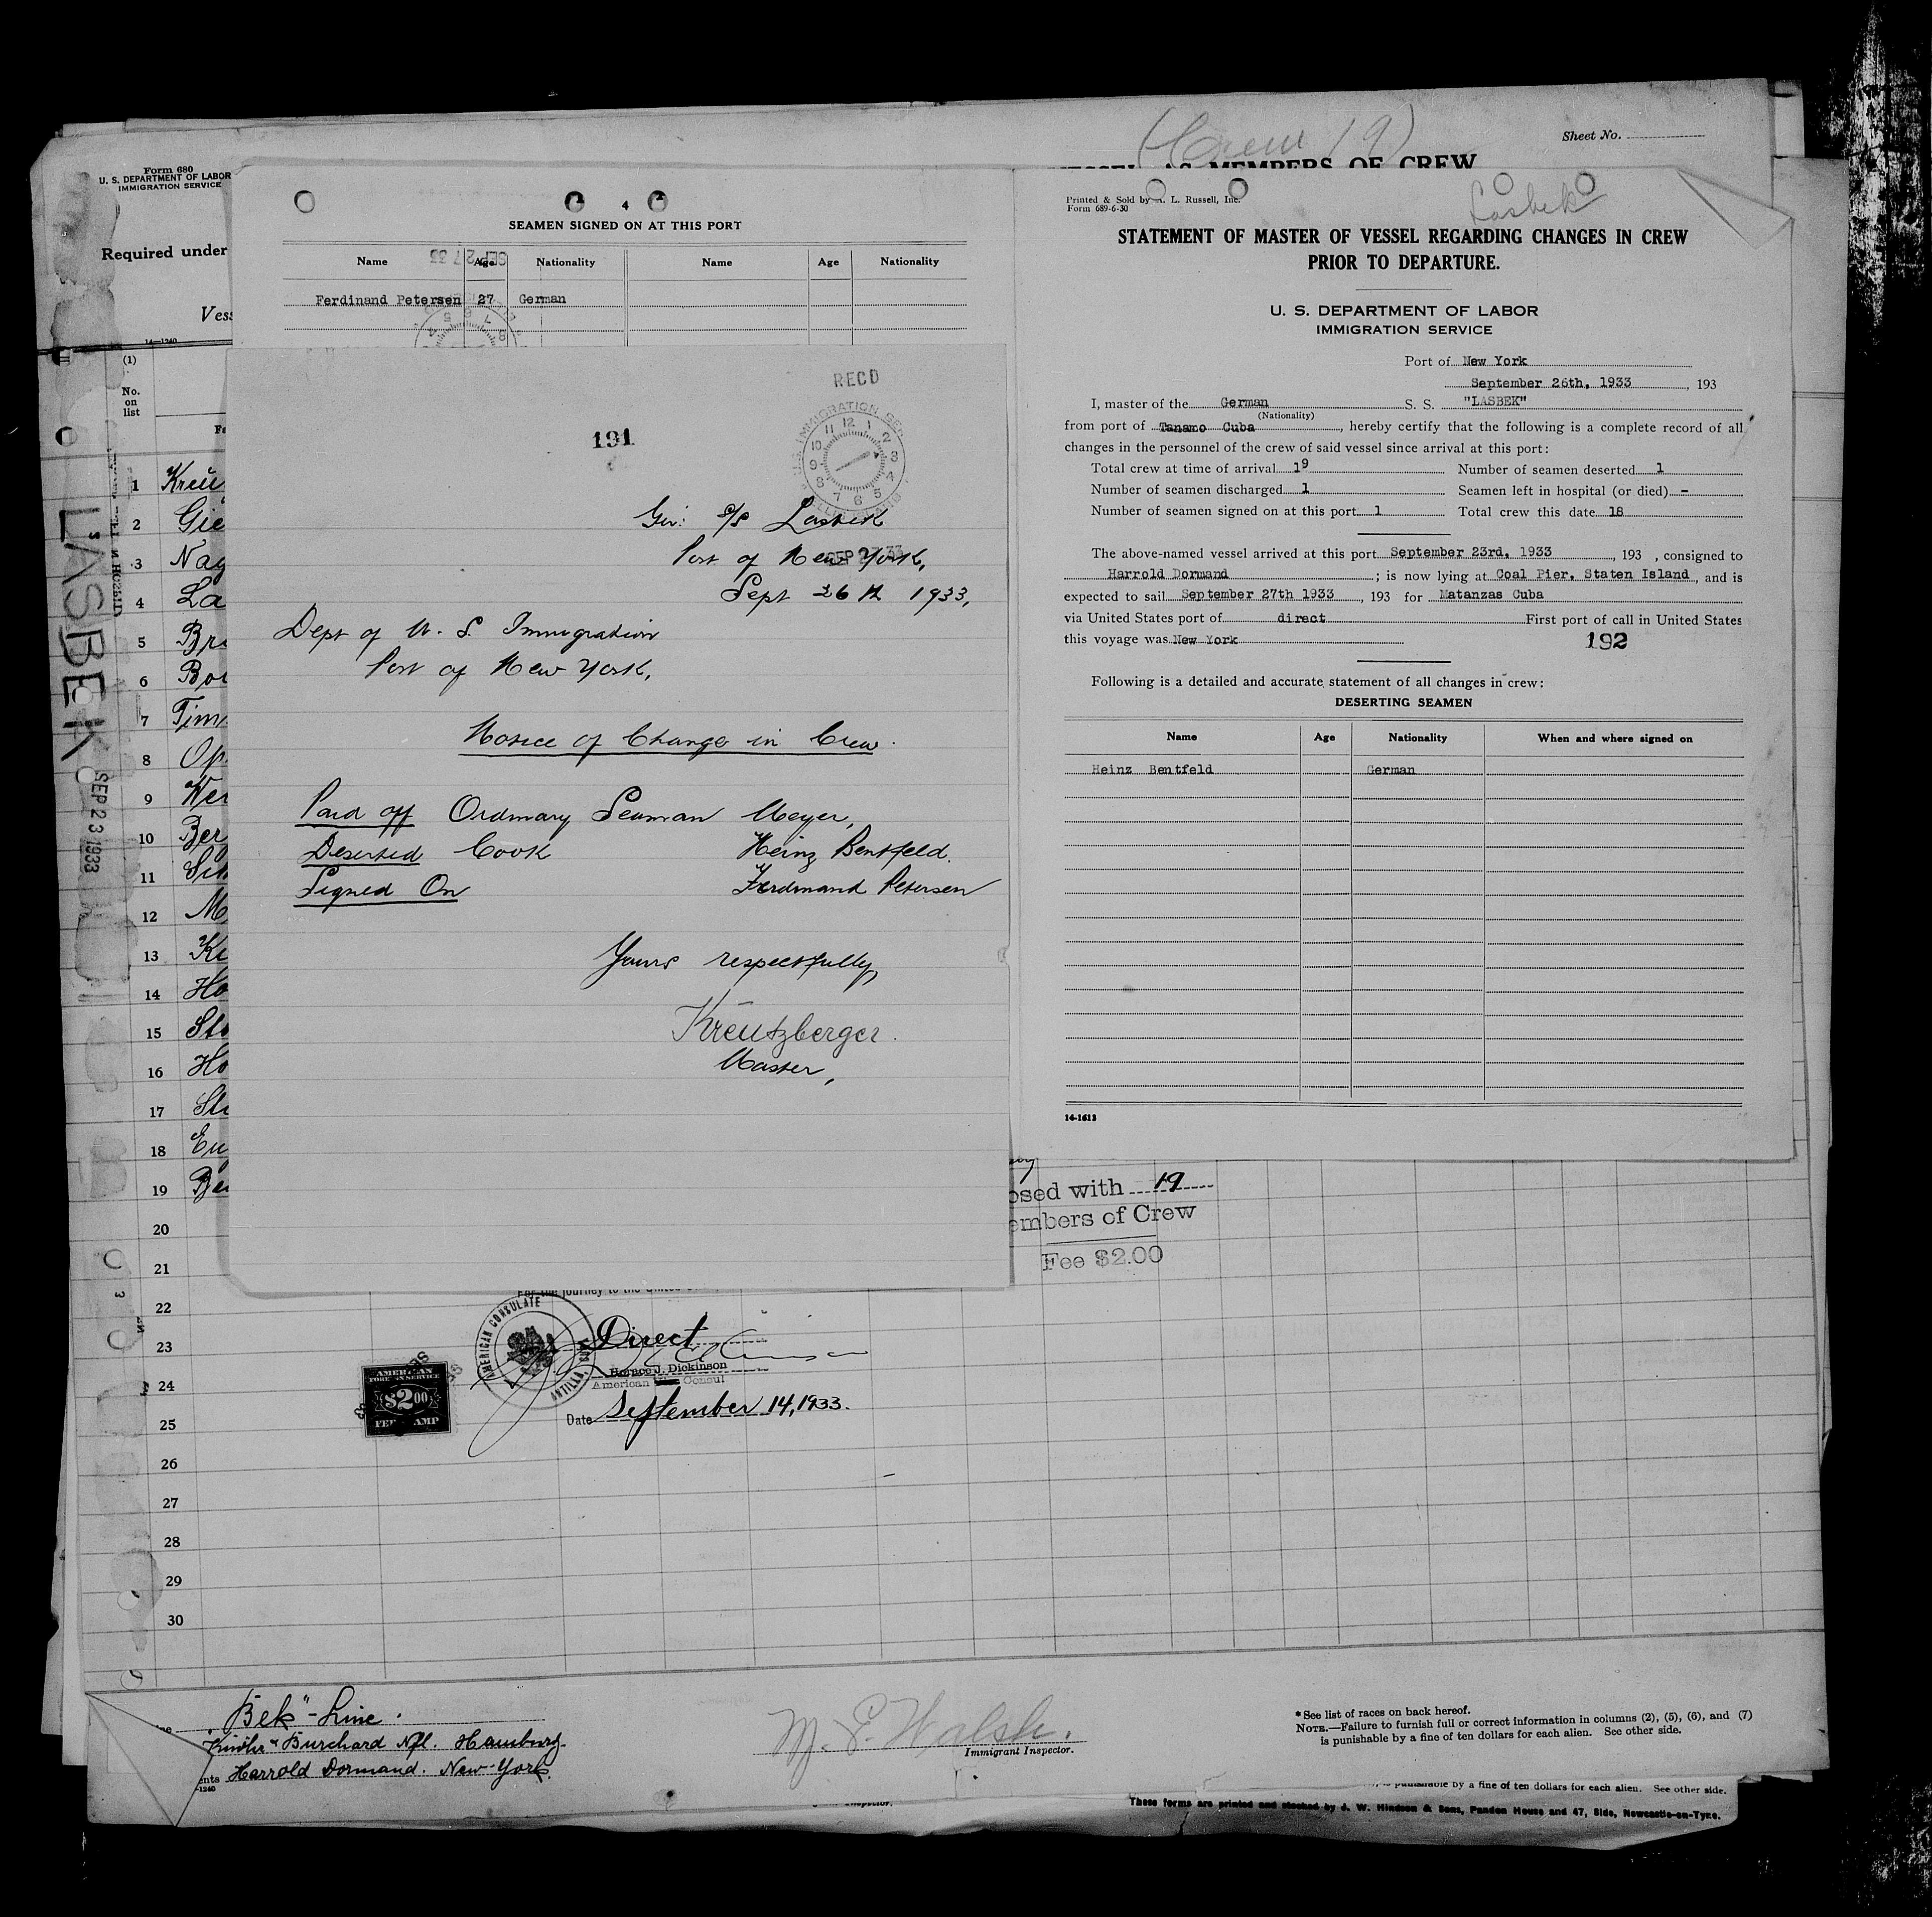 (Crew 19)
Sheet No.
MEMBERS OF CREW
Form 680
U. S. DEPARTMENT OF LABOR
IMMIGRATION SERVICE
Required under
Vess
14—1240
(1)
No.
on
list
LASBEK
SEP 23 1933
1 Kreu
2 Gie
3 Nag
4 La
5 Bro
6 Boi
7 Tim
8 Op
9 Wer
10 Ber
11 Sch
12 M
13 Ke
14 Ho
15 Sto
16 Ho
17 Ste
18 Eu
19 Be
20
21
22
23
24
25
26
27
28
29
30
4
SEAMEN SIGNED ON AT THIS PORT
Name Age Nationality Name Age Nationality
SEP 27 33
Ferdinand Petersen 27 German
RECD
U.S. IMMIGRATION SER.
191
Ger: S/S Lasbek
Port of New York,
SEP 27 33
Sept 26th 1933,
Dept of U. S. Immigration
Port of New York,
Notice of Change in Crew.
Paid off Ordinary Seaman Meyer,
Deserted Cook Heinz Bentfeld.
Signed On Ferdinand Petersen
Yours respectfully,
Kreutzberger.
Master,
Printed & Sold by A. L. Russell, Inc.
Form 689-6-30
Lasbek
STATEMENT OF MASTER OF VESSEL REGARDING CHANGES IN CREW
PRIOR TO DEPARTURE.
U. S. DEPARTMENT OF LABOR
IMMIGRATION SERVICE
Port of New York
September 26th, 1933, 193
I, master of the German S. S. "LASBEK"
(Nationality)
from port of Tanamo Cuba, hereby certify that the following is a complete record of all
changes in the personnel of the crew of said vessel since arrival at this port:
Total crew at time of arrival 19 Number of seamen deserted 1
Number of seamen discharged 1 Seamen left in hospital (or died) -
Number of seamen signed on at this port 1 Total crew this date 18
The above-named vessel arrived at this port September 23rd, 1933, 193 , consigned to
Harrold Dormand; is now lying at Coal Pier, Staten Island, and is
expected to sail September 27th 1933, 193 for Matanzas Cuba
via United States port of direct First port of call in United States
this voyage was New York
192
Following is a detailed and accurate statement of all changes in crew:
DESERTING SEAMEN
Name Age Nationality When and where signed on
Heinz Bentfeld German
14-1613
osed with 19
embers of Crew
Fee $2.00
For the journey to the United
AMERICAN CONSULATE
Direct
Horace J. Dickinson
American Consul
Date September 14, 1933.
AMERICAN
FOREIGN SERVICE
$2.00
FEE STAMP
"Bek"-Line.
Burchard Nfl. Hamburg.
ents Harrold Dormand. New-York.
-1240
M. E. Walsh.
Immigrant Inspector.
* See list of races on back hereof.
NOTE.—Failure to furnish full or correct information in columns (2), (5), (6), and (7)
is punishable by a fine of ten dollars for each alien. See other side.
is punishable by a fine of ten dollars for each alien. See other side.
These forms are printed and stocked by J. W. Hindson & Sons, Pandon House and 47, Side, Newcastle-on-Tyne.